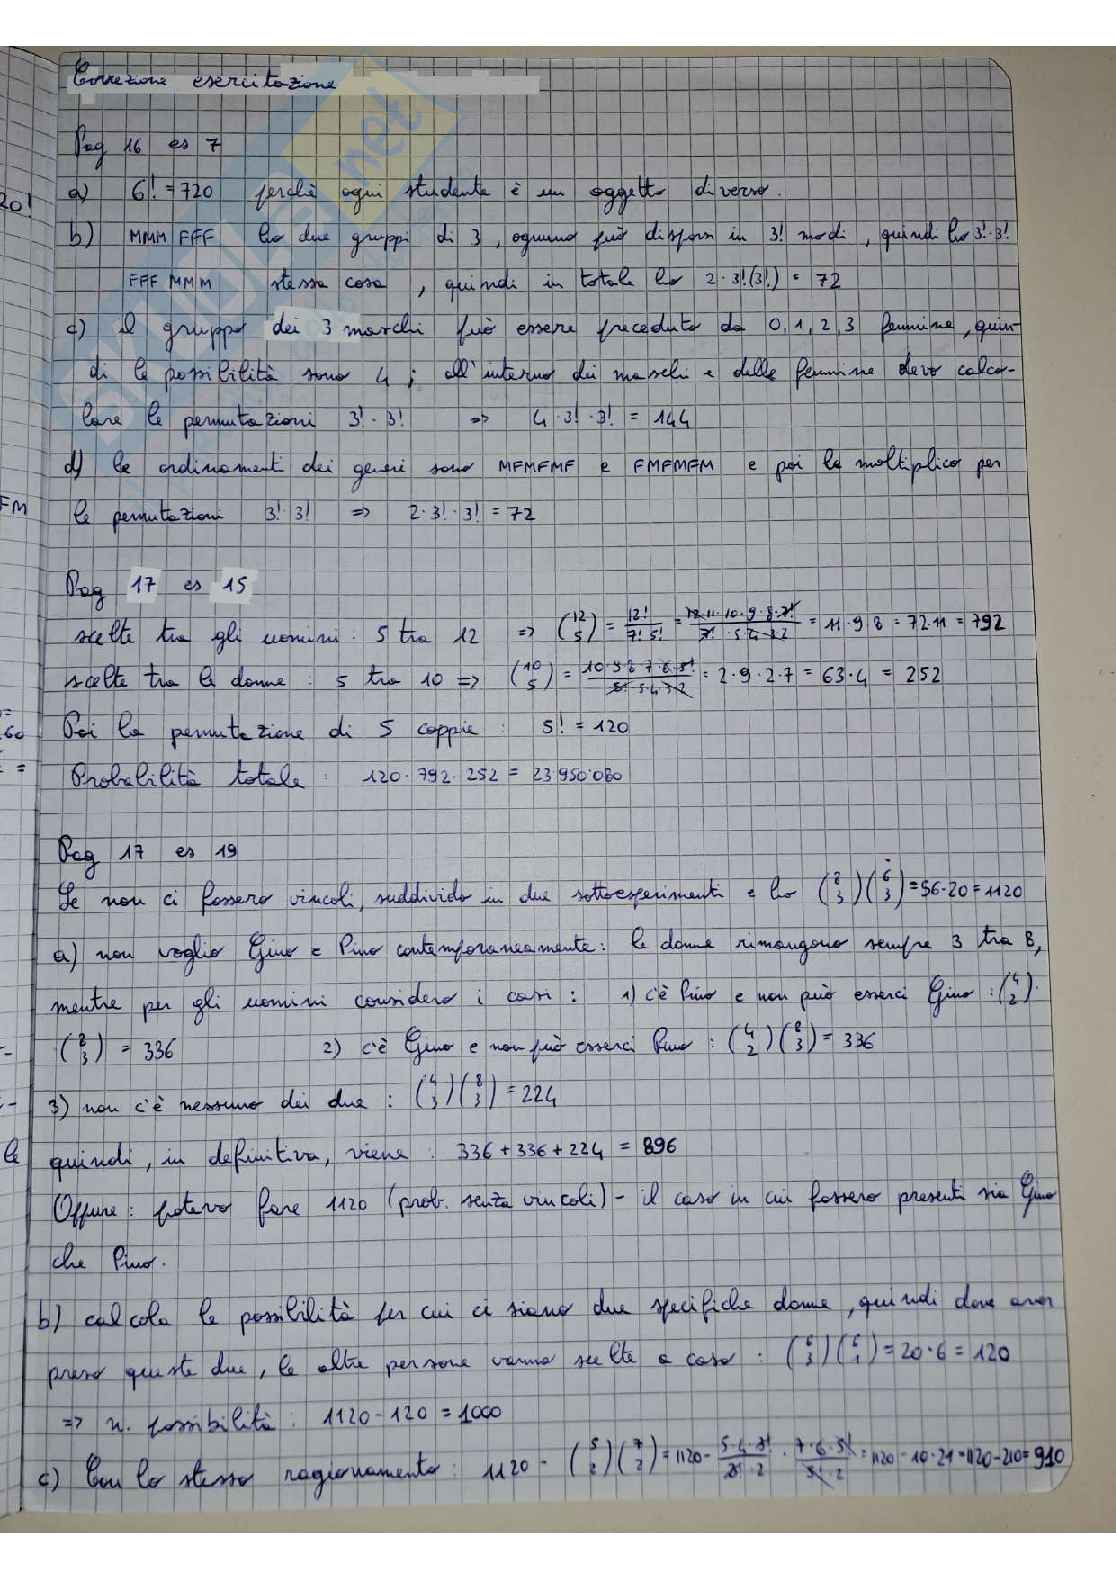 Correzione esercitazione
Pag 16 es 7
20!
a) 6! = 720 perchè ogni studente è un oggetto diverso.
b) MMM FFF ho due gruppi di 3, ognuno può disporsi in 3! modi, quindi ho 3!·3!
FFF MMM stessa cosa, quindi in totale ho 2·3!(3!) = 72
c) il gruppo dei 3 maschi può essere preceduto da 0, 1, 2, 3 femmine, quin-
di le possibilità sono 4; all'interno dei maschi e delle femmine devo calco-
lare le permutazioni 3!·3! => 4·3!·3! = 144
d) le ordinamenti dei generi sono MFMFMF e FMFMFM e poi lo moltiplico per
FM
le permutazioni 3!·3! => 2·3!·3! = 72
Pag 17 es 15
scelte tra gli uomini: 5 tra 12 => (12 5) = 12!/7!5! = 12·11·10·9·8·7!/7!·5·4·3·2 = 11·9·8 = 72·11 = 792
scelte tra le donne: 5 tra 10 => (10 5) = 10·9·8·7·6·5!/5!·5·4·3·2 = 2·9·2·7 = 63·4 = 252
60
Poi la permutazione di 5 coppie: 5! = 120
=
Probabilità totale: 120·792·252 = 23·950·080
Pag 17 es 19
Se non ci fossero vincoli, suddivido in due sottoesperimenti e ho (8 3)(6 3) = 56·20 = 1120
a) non voglio Gino e Pino contemporaneamente: le donne rimangono sempre 3 tra 8,
mentre per gli uomini considero i casi: 1) c'è Pino e non può esserci Gino: (4 2)·
(8 3) = 336 2) c'è Gino e non può esserci Pino: (4 2)(8 3) = 336
3) non c'è nessuno dei due: (4 3)(8 3) = 224
le
quindi, in definitiva, viene: 336+336+224 = 896
Oppure: potevo fare 1120 (prob. senza vincoli) - il caso in cui fossero presenti sia Gino
che Pino.
b) calcolo le possibilità per cui ci siano due specifiche donne, quindi dove aver
preso queste due, le altre persone vanno scelte a caso: (6 3)(6 1) = 20·6 = 120
=> n. possibilità: 1120-120 = 1000
c) Con lo stesso ragionamento: 1120 - (5 2)(7 2) = 1120 - 5·4·3!/3!·2 · 7·6·5!/5!·2 = 1120 - 10·21 = 1120-210 = 910